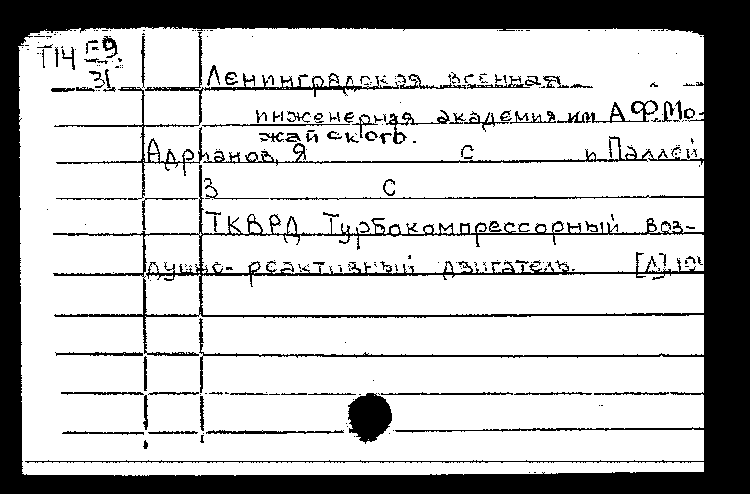 Т14 Г-9
31
Ленинградская военная
инженерная академия им А Ф Мо-
жайского.
Адрианов, Я С и Паллей,
З С
ТКВРД Турбокомпрессорный воз-
душно-реактивный двигатель. [Л], 194